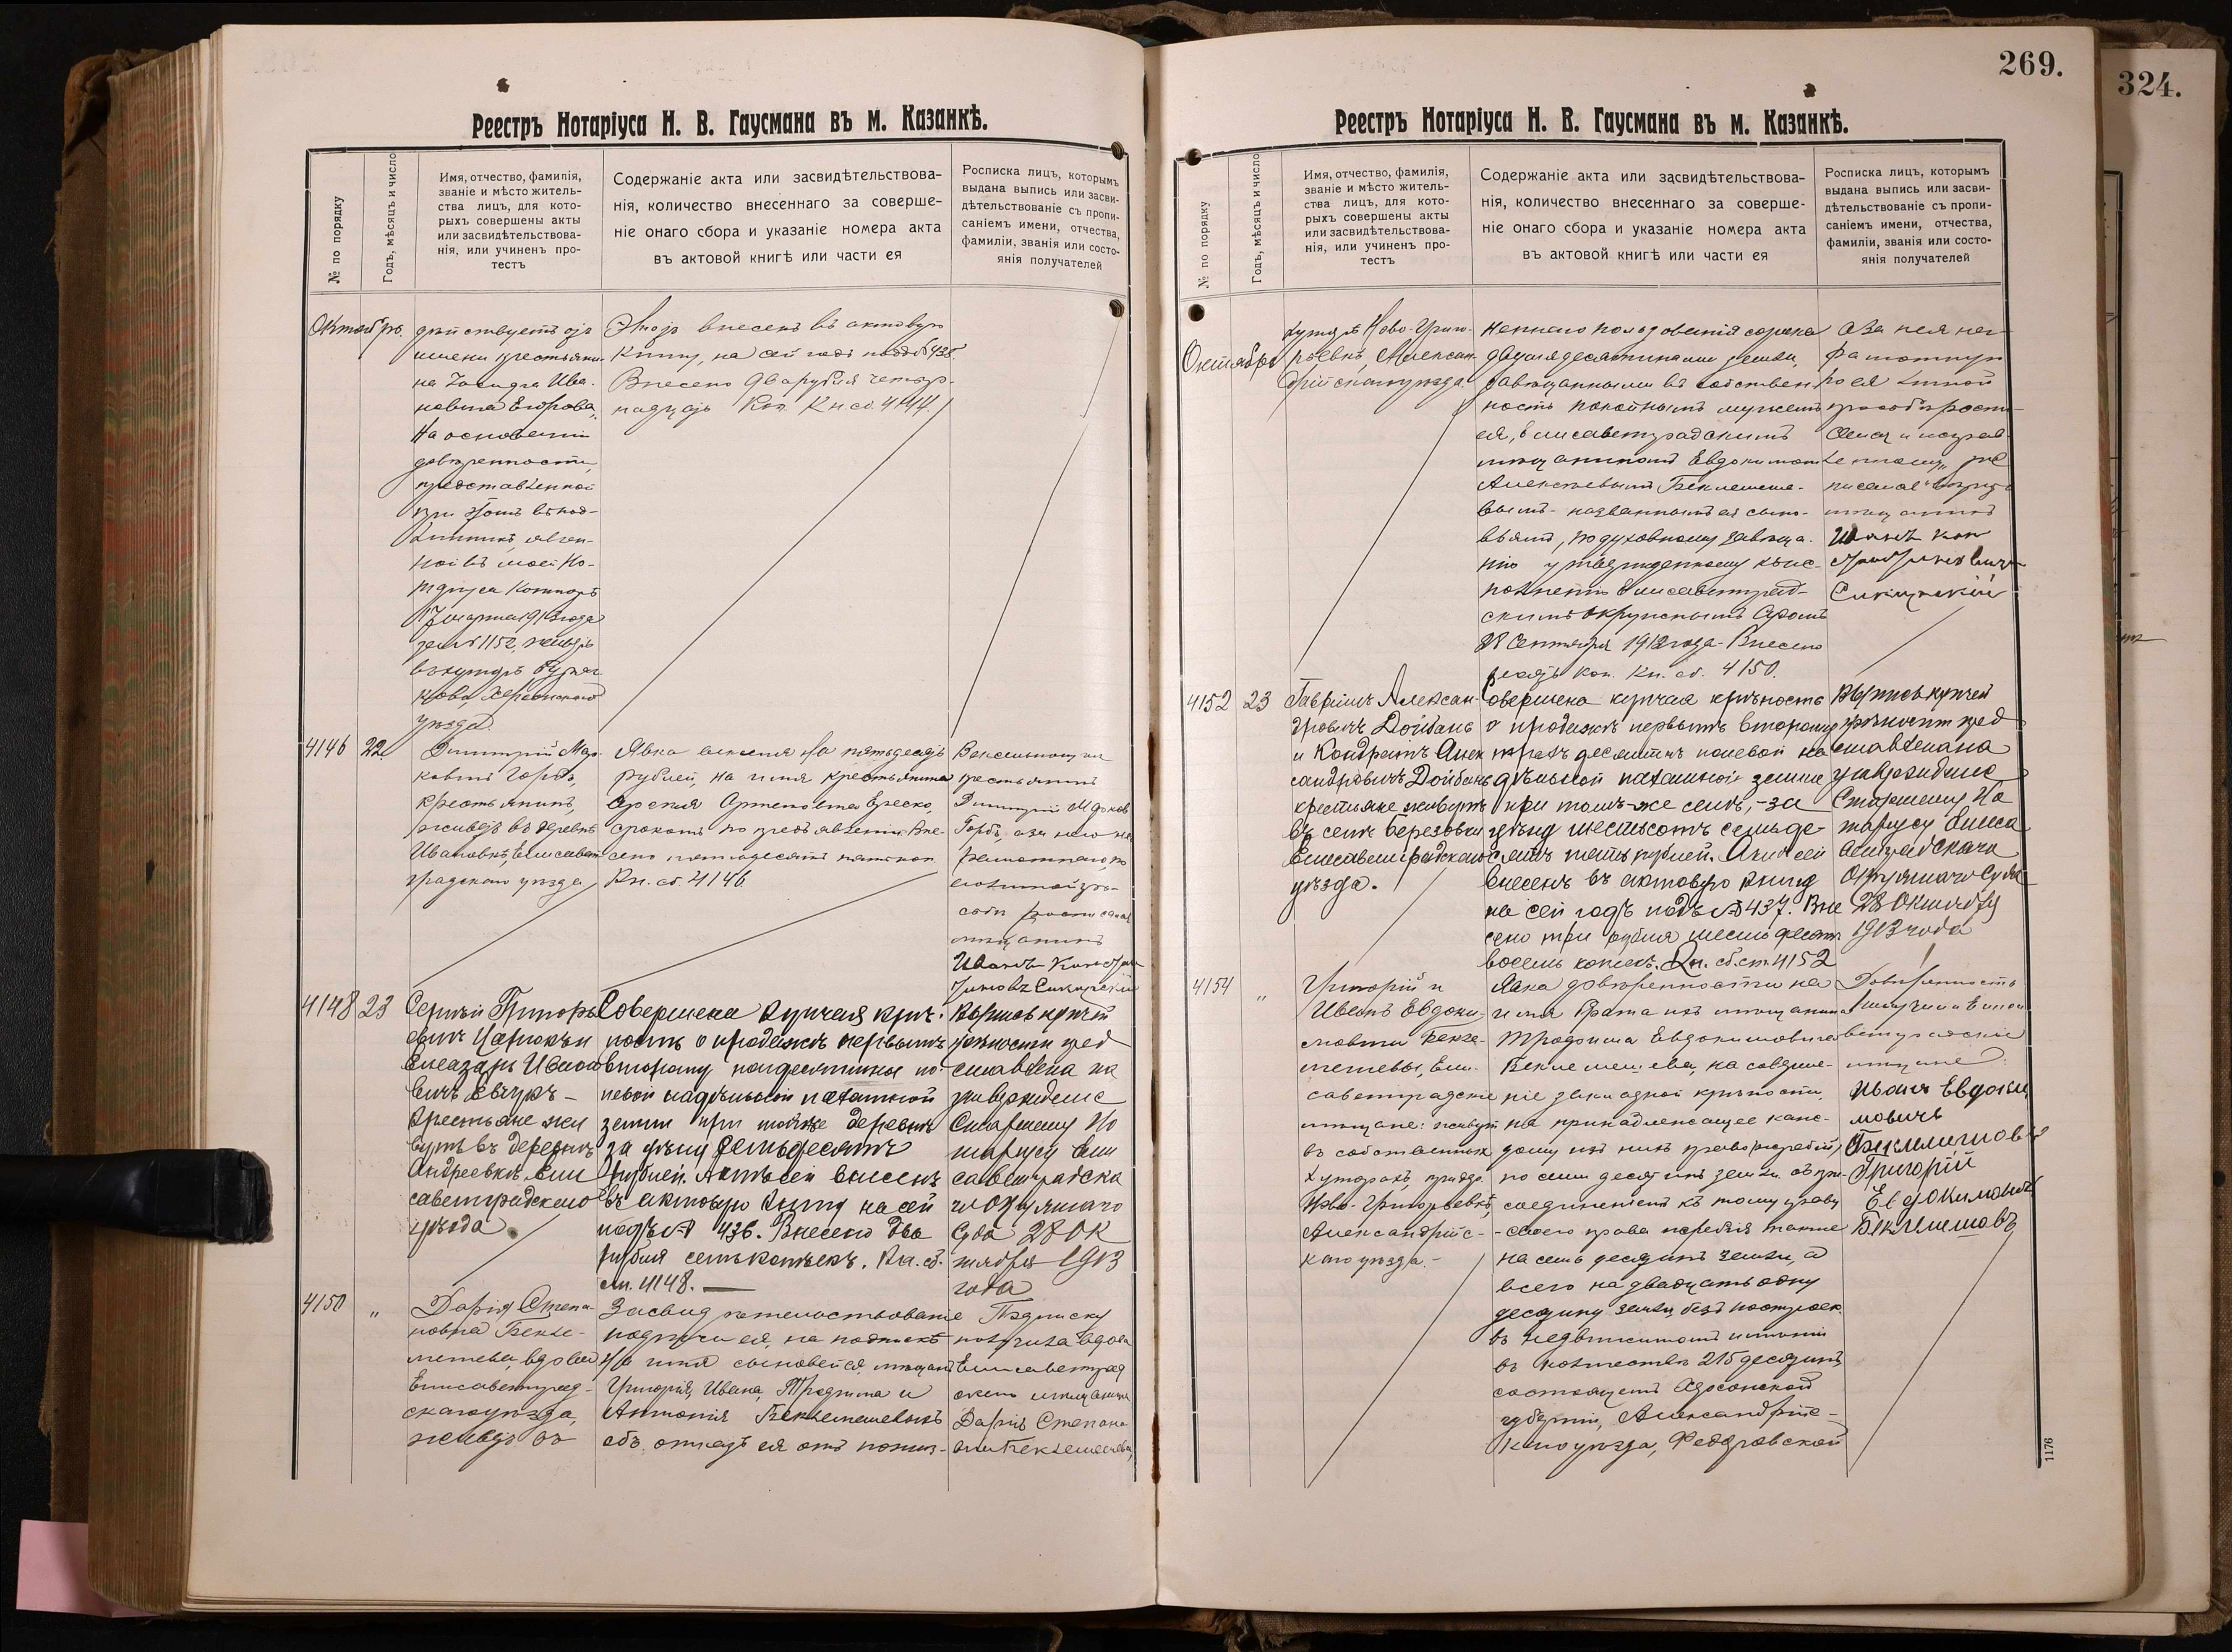 269.
324.
Реестръ Нотаріуса Н. В. Гаусмана въ м. Казанкѣ.
№ по порядку
Годъ, мѣсяцъ и число
Имя, отчество, фамилія,
званіе и мѣсто житель-
ства лицъ, для кото-
рыхъ совершены акты
или засвидѣтельствова-
нія, или учиненъ про-
тестъ
Содержаніе акта или засвидѣтельствова-
нія, количество внесеннаго за соверше-
ніе онаго сбора и указаніе номера акта
въ актовой книгѣ или части ея
Росписка лицъ, которымъ
выдана выпись или засви-
дѣтельствованіе съ пропи-
саніемъ имени, отчества,
фамиліи, званія или состо-
янія получателей
Октябрь.
дѣйствуетъ отъ
имени крестьяни-
на Ива-
новича Егорова,
на основаніи
довѣренности,
представленной
при этомъ въ под-
линникѣ, явлен-
ной въ моей Но-
таріуса Конторѣ
марта 1913 года
за № 1152, живетъ
въ хуторѣ
Херсонскаго
уѣзда.
Актъ внесенъ въ актовую
книгу, на сей годъ подъ № 435.
Внесено два рубля четыр-
надцать коп. Кн. сб. 4144.
4146
22
Димитрій Мар-
ковичъ Горбъ,
крестьянинъ,
живетъ въ деревнѣ
Ивановкѣ, Елисавет-
градскаго уѣзда.
Явка векселя на пятьдесятъ
рублей, на имя крестьянина
Ереско,
срокомъ по предъявленіи. Вне-
сено пятьдесятъ пять коп.
Кн. сб. 4146
Вексель получилъ
крестьянинъ
Димитрій Марков
Горбъ, а за него не
грамотнаго, по
его личной прось-
бѣ росписался
мѣщанинъ
Иванъ Констан-
тиновъ Сикирскій
4148
23
Сергѣй Григорь
евичъ и
Елеазаръ Ивано
вичъ
крестьяне жи
вутъ въ деревнѣ
Андреевкѣ Ели
саветградскаго
уѣзда
Совершена купчая крѣ-
пость о продажѣ первымъ
второму полдесятины по-
левой надѣльной пахатной
земли при той же деревнѣ
за цѣну семьдесятъ
рублей. Актъ сей внесенъ
въ актовую книгу на сей
годъ № 436. Внесено два
рубля семь копѣекъ. Кн. сб.
ст. 4148.
Выпись купчей
крѣпости пред
ставлена на
утвержденіе
Старшему Но
таріусу Ели
саветградска
го Окружнаго
Суда 28 Ок
тября 1913
года
4150
"
Дарія Степа-
новна Бекле-
мешева, вдова
Елисаветград-
скаго уѣзда,
живетъ въ
Засвидѣтельствованіе
подписи ея, на подпискѣ
на имя сыновей ея, мѣщанъ
Григорія, Ивана, Трофима и
Антонія Беклемешевыхъ
объ отказѣ ея отъ пожиз-
Подписку
получила вдова
Елисаветград
скаго мѣщанина
Дарія Степано-
вна Беклемешева,
Реестръ Нотаріуса Н. В. Гаусмана въ м. Казанкѣ.
№ по порядку
Годъ, мѣсяцъ и число
Имя, отчество, фамилія,
званіе и мѣсто житель-
ства лицъ, для кото-
рыхъ совершены акты
или засвидѣтельствова-
нія, или учиненъ про-
тестъ
Содержаніе акта или засвидѣтельствова-
нія, количество внесеннаго за соверше-
ніе онаго сбора и указаніе номера акта
въ актовой книгѣ или части ея
Росписка лицъ, которымъ
выдана выпись или засви-
дѣтельствованіе съ пропи-
саніемъ имени, отчества,
фамиліи, званія или состо-
янія получателей
Октябрь
хуторѣ Ново-Григо-
рьевкѣ, Алексан-
дрійскаго уѣзда.
неннаго пользованія сорока
двумя десятинами земли,
завѣщанными въ собствен-
ность покойнымъ мужемъ
ея, Елисаветградскимъ
мѣщаниномъ Евдокимомъ
Алексѣевымъ Беклемеше-
вымъ названнымъ ея сыно-
вьямъ, по духовному завѣща-
нію утвержденному къ ис-
полненію Елисаветград-
скимъ Окружнымъ Судомъ
28 Сентября 1912 года. Внесено
коп. Кн. сб. 4150.
а за нея негра-
мотную
по ея личной
просьбѣ
мѣщанинъ
Иванъ Кон
стантиновичъ
Сикирскій
4152
23
Гавріилъ Алексан-
дровичъ Дойбань
и Кондратъ Алек
сандровичъ Дойбань
крестьяне живутъ
въ селѣ Березовки
Елисаветградскаго
уѣзда.
Совершена купчая крѣпость
о продажѣ первымъ второму
трехъ десятинъ полевой на
дѣльной пахатной земли
при томъ-же селѣ, - за
цѣну шестьсотъ семьде
сятъ пять рублей. Актъ сей
внесенъ въ актовую книгу
на сей годъ подъ № 437. Вне
сено три рубля шестьдесятъ
восемь копѣекъ. Кн. сб. ст. 4152
Выпись купчей
крѣпости пред
ставлена на
утвержденіе
Старшему Но
таріусу Елиса
ветградскаго
Окружнаго Суда
28 Октября
1913 года
4154
"
Григорій и
Иванъ Евдоки-
мовичи Бекле-
мешевы, Ели-
саветградскіе
мѣщане: живутъ
въ собственныхъ
хуторахъ, при дер.
Ново-Григорьевкѣ,
Александрійс-
каго уѣзда.
Явка довѣренности на
имя брата ихъ мѣщанина
Трофима Евдокимовича
Беклемешева, на соверше-
ніе закладной крѣпости,
на принадлежащее каж-
дому изъ нихъ право
по семи десятинъ земли съ при-
соединеніемъ къ тому праву
своего права также
на семь десятинъ земли, а
всего на двадцать одну
десятину земли, безъ построекъ
въ недвижимомъ имѣніи
въ количествѣ 215 десятинъ
состоящемъ Херсонской
губерніи, Александрійс-
каго уѣзда, Федоровской
Довѣренность
получили Елиса-
ветградскіе
мѣщане:
Иванъ Евдоки
мовичъ
Беклемишовъ
Григорій
Евдокимовичъ
Беклемишовъ
1176